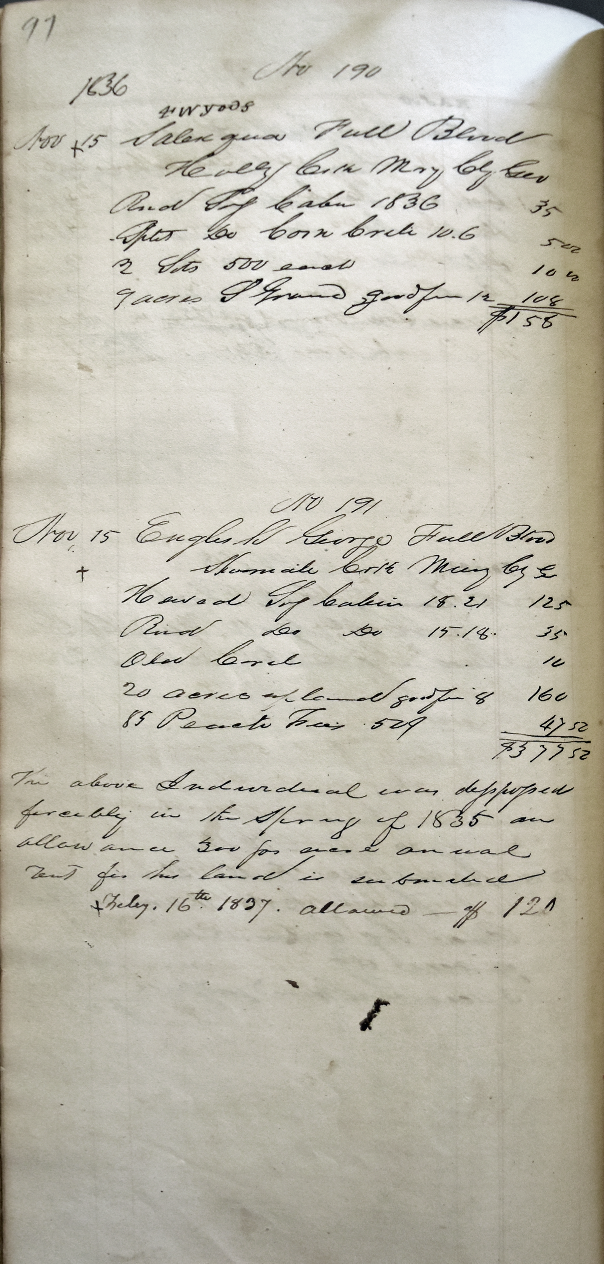 97
No 190
1836
Nov 15 Full Blood
Holly Crk Mry Cty Geo
Rnd Log Cabin 1836 35
Split Do Corn Crib 10.6 500
2 500 each 10 00
9 acres Ground good fen 12 108
$158
No 191
Nov 15 English George Full Blood
Crk Murry Cty G
Hewed Log Cabin 18.21 125
Rnd Do Do 15.18. 35
Old 10
20 acres upland good fen 8 160
85 Peach Trees 47 52
$377 52
The above Individual was disposesed
forceibly in the Spring of 1835 an
allowance 300 per acre annual
rent for his land is submitted
Feby. 16th 1837. allowed — $ 120